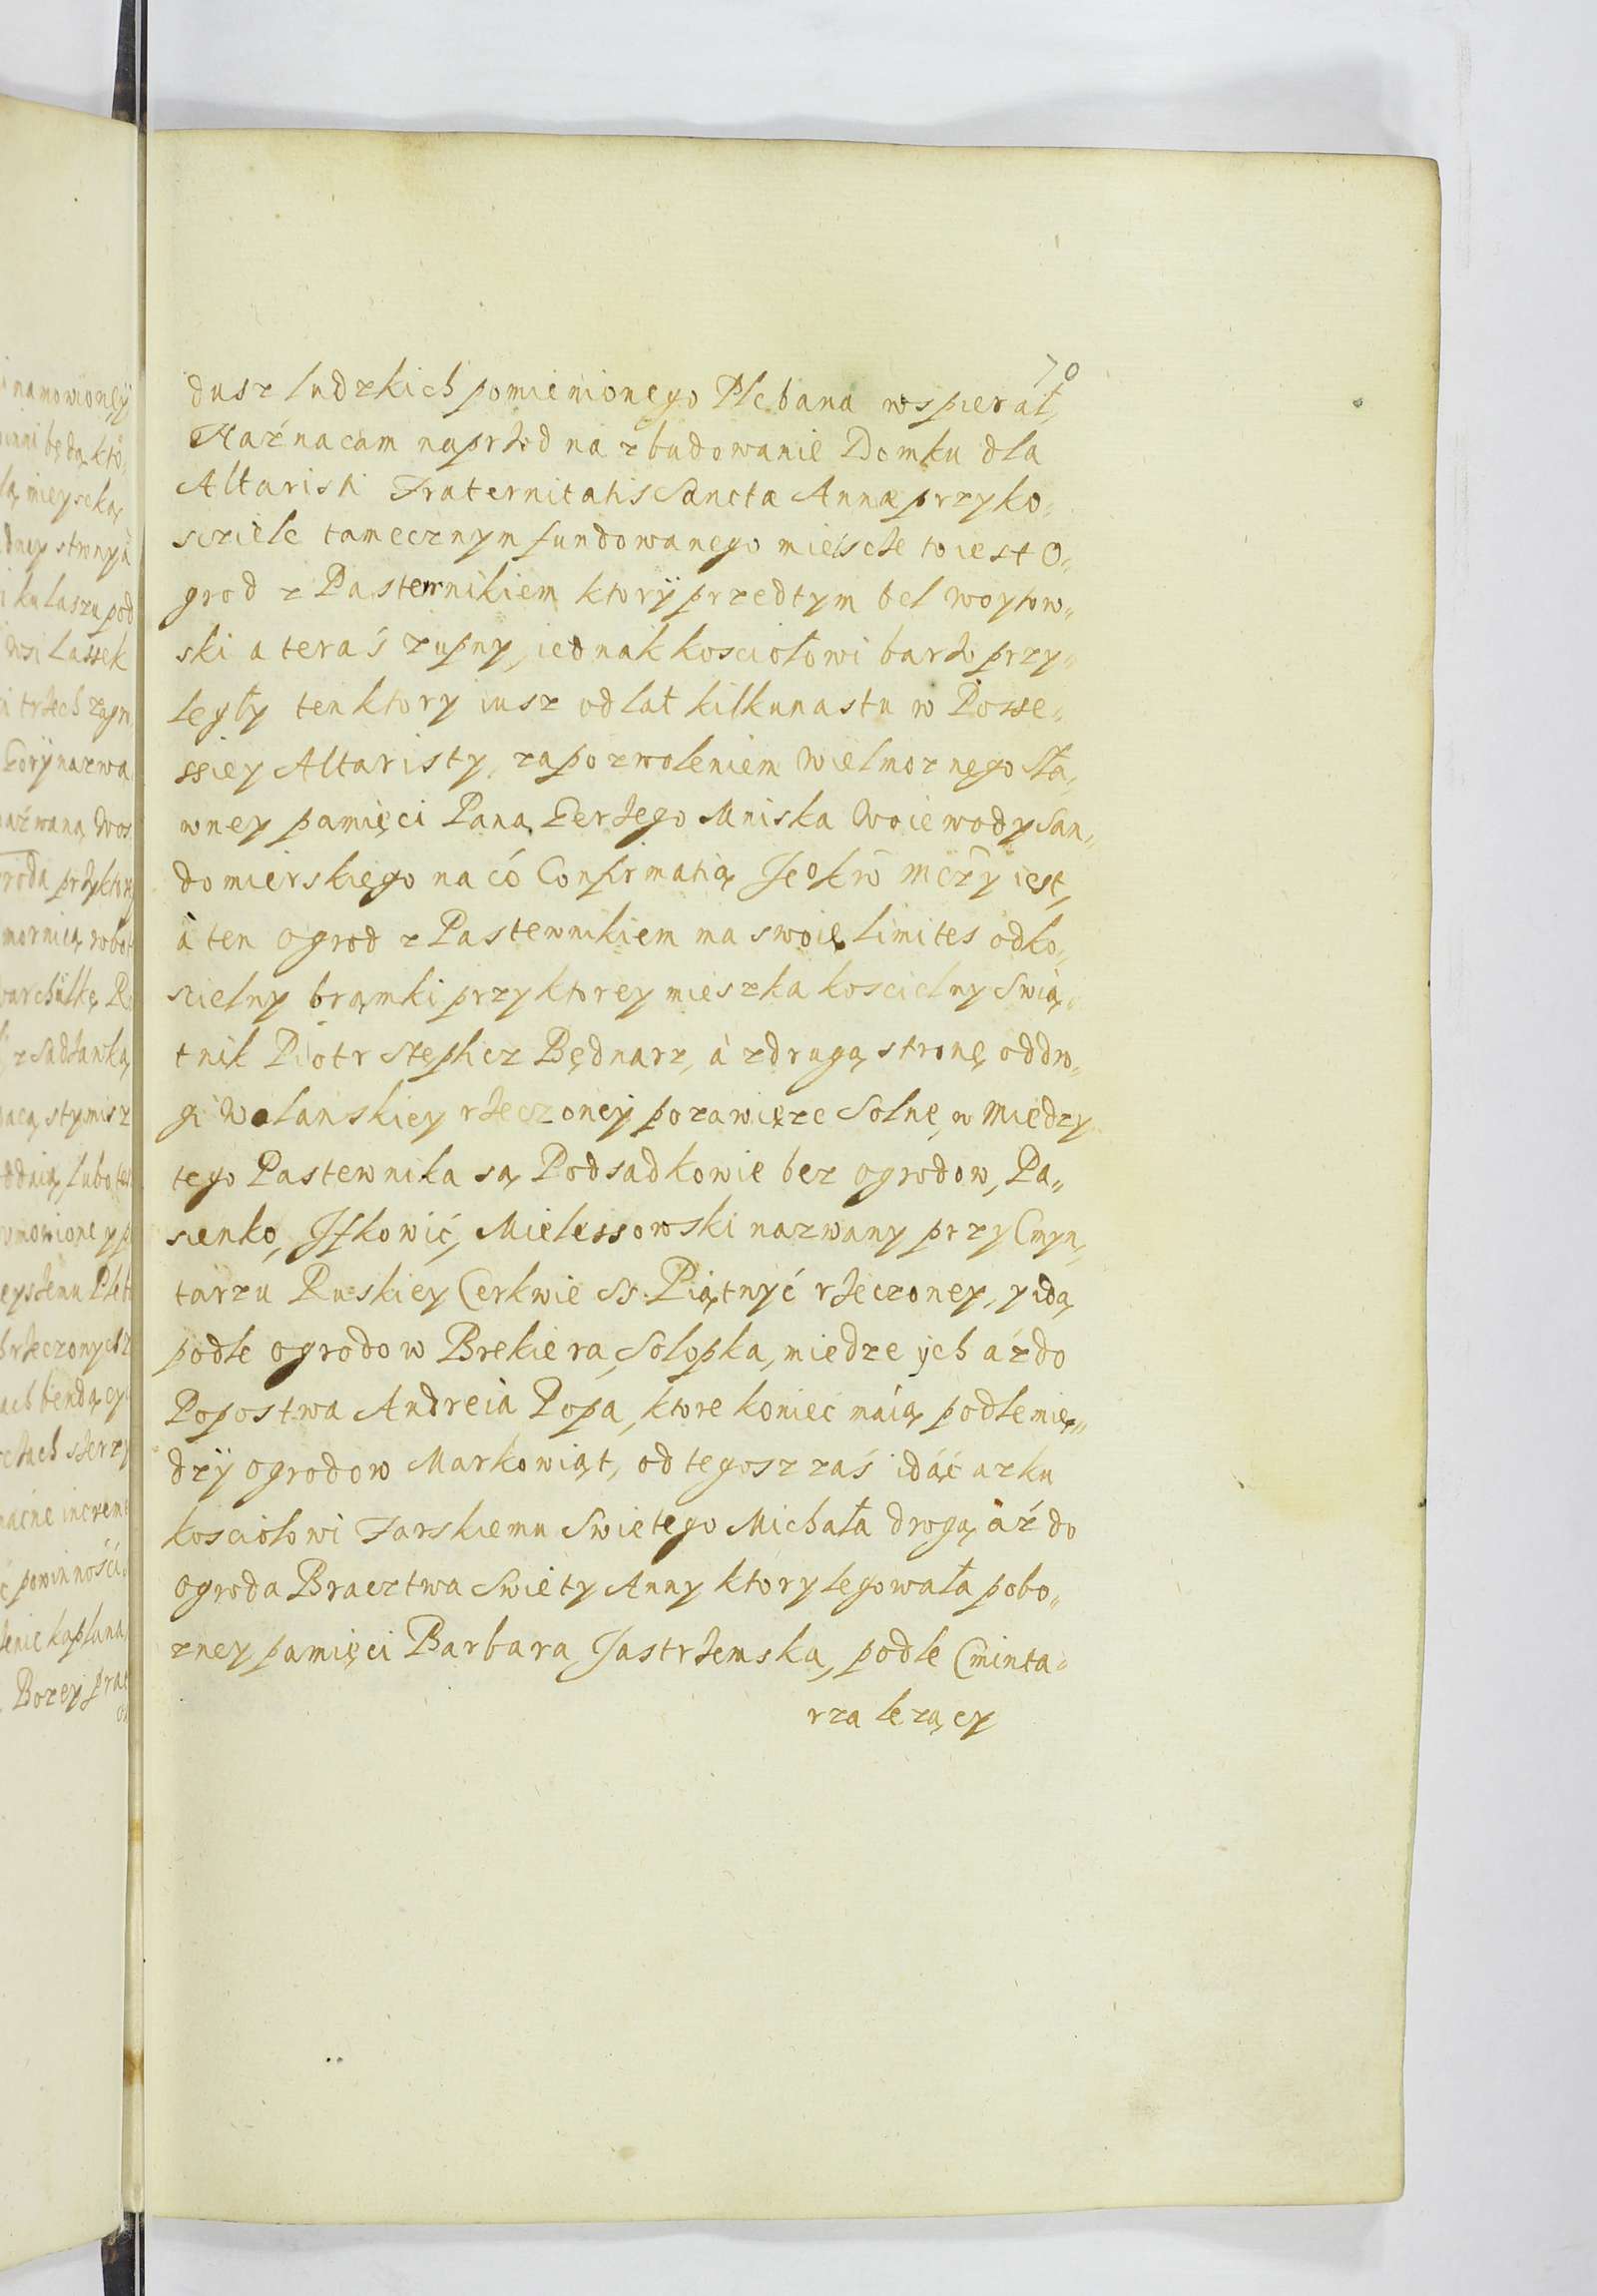 70
dusz ludzkich pomienionego Plebana wspierał,
Naźnacam naprżod na zbudowanie Domku dla
Altaristi Fraternitatis Sanctæ Annæ przyko„
sciele tamecznym fundowanego mieisce to iest O„
grod z Pasternikiem ktorÿ przedtym bel woytow„
ski a teraś zupny, iednak kosciołowi barżo przy„
legły ten ktory iusz od lat kilkunastu w Posse„
ssiey Altaristy, za pozwoleniem Wielmoznego Sła„
wney pamięci Pana Jerżego Mniska Woiewody San„
domierskiego na có Confirmatią Jeo Krō Mczÿ iest,
à ten Ogrod z Pastewnikiem ma swoie limites od ko„
scielny brąmki przy ktorey mieszka koscielny Swią„
tnik Piotr Stephcz Będnarz, à z drugą stronę od dro„
gi Wolanskiey rżeczoneÿ po zawięze Solne, w Miedzy
tego Pastewnika są Podsadkowie bez ogrodow, Pa„
sienko, Ifkowić, Mielessowski nazwany przy Cmyn„
tarzu Ruskiey Cerkwie SS. Piątnyć rżeczoney, y idą
podle ogrodow Brekiera, Solopka, miedze ÿch aź do
Popostwa Andreia Popa, ktore koniec maią podle mię„
dzÿ ogrodow Markowiąt, od tegosz zaś idąć az ku
kosciołowi Farskiemu Swietego Michała drogą àź do
ogroda Bractwa Swiety Anny ktory legowała pobo„
zney pamięci Barbara Jastrżemska, podle Cminta„
rza lezący